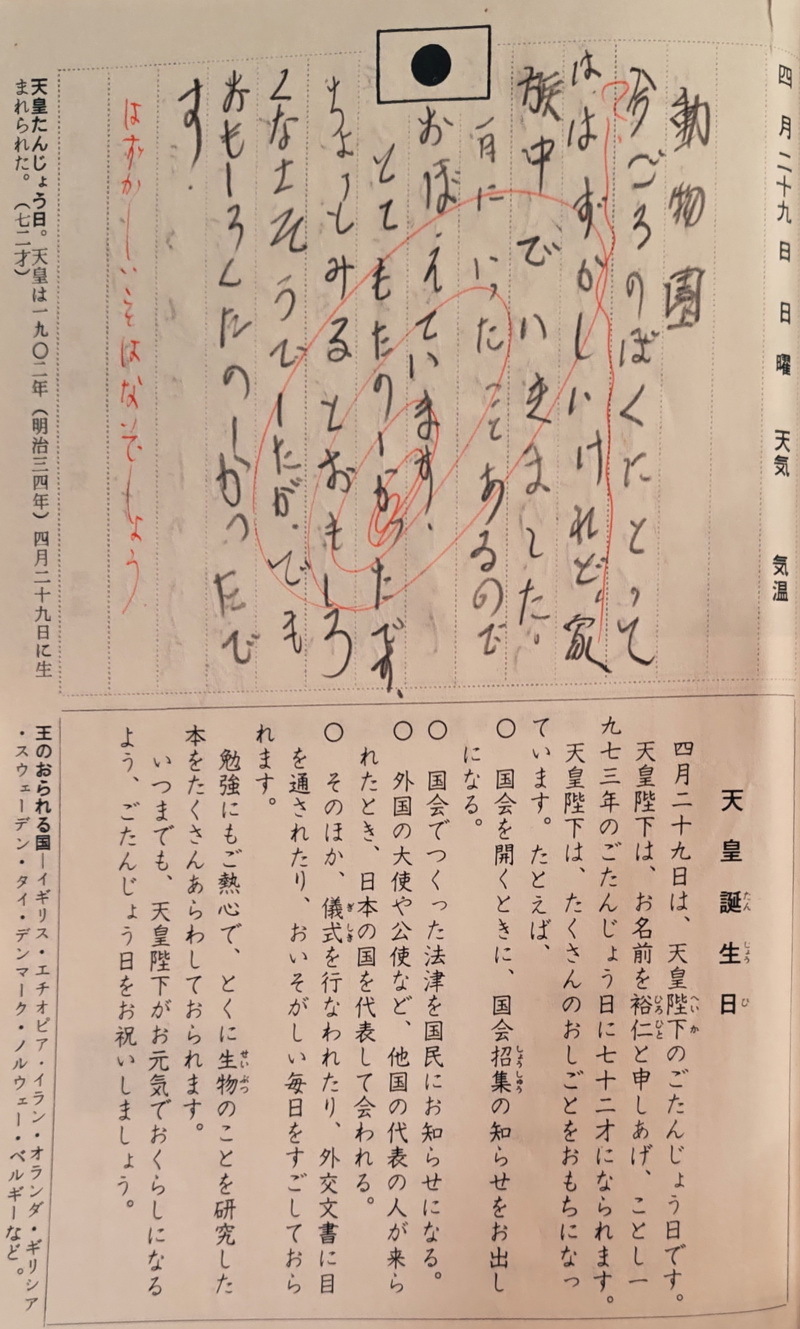 四月二十九日 日曜 天気 気温
動物園
今ごろのぼくにとって
ははずかしいけれど、家
族中でいきました。
一
おぼえています、
とてもたのしかったです、
ちょっとみるとおもしろ
くなさそうでしたが、でも
おもしろくたのしかったで
す.
はずかしいことはないでしょう
天皇たんじょう日。天皇は一九〇二年(明治三四年)四月二十九日に生
まれられた。(七二才)
天皇誕生日
たんじょうび
四月二十九日は、天皇陛下のごたんじょう日です。
へいか
天皇陛下は、お名前を裕仁と申しあげ、ことし一
ひろひと
九七三年のごたんじょう日に七十二才になられます。
天皇陛下は、たくさんのおしごとをおもちになっ
ています。たとえば、
〇 国会を開くときに、国会招集の知らせをお出し
しょうしゅう
になる。
〇 国会でつくった法津を国民にお知らせになる。
〇 外国の大使や公使など、他国の代表の人が来ら
れたとき、日本の国を代表して会われる。
〇 そのほか、儀式を行なわれたり、外交文書に目
ぎしき
を通されたり、おいそがしい毎日をすごしておら
れます。
勉強にもご熱心で、とくに生物のことを研究した
せいぶつ
本をたくさんあらわしておられます。
いつまでも、天皇陛下がお元気でおくらしになる
よう、ごたんじょう日をお祝いしましょう。
王のおられる国―イギリス・エチオピア・イラン・オランダ・ギリシア
・スウェーデン・タイ・デンマーク・ノルウェー・ベルギーなど。